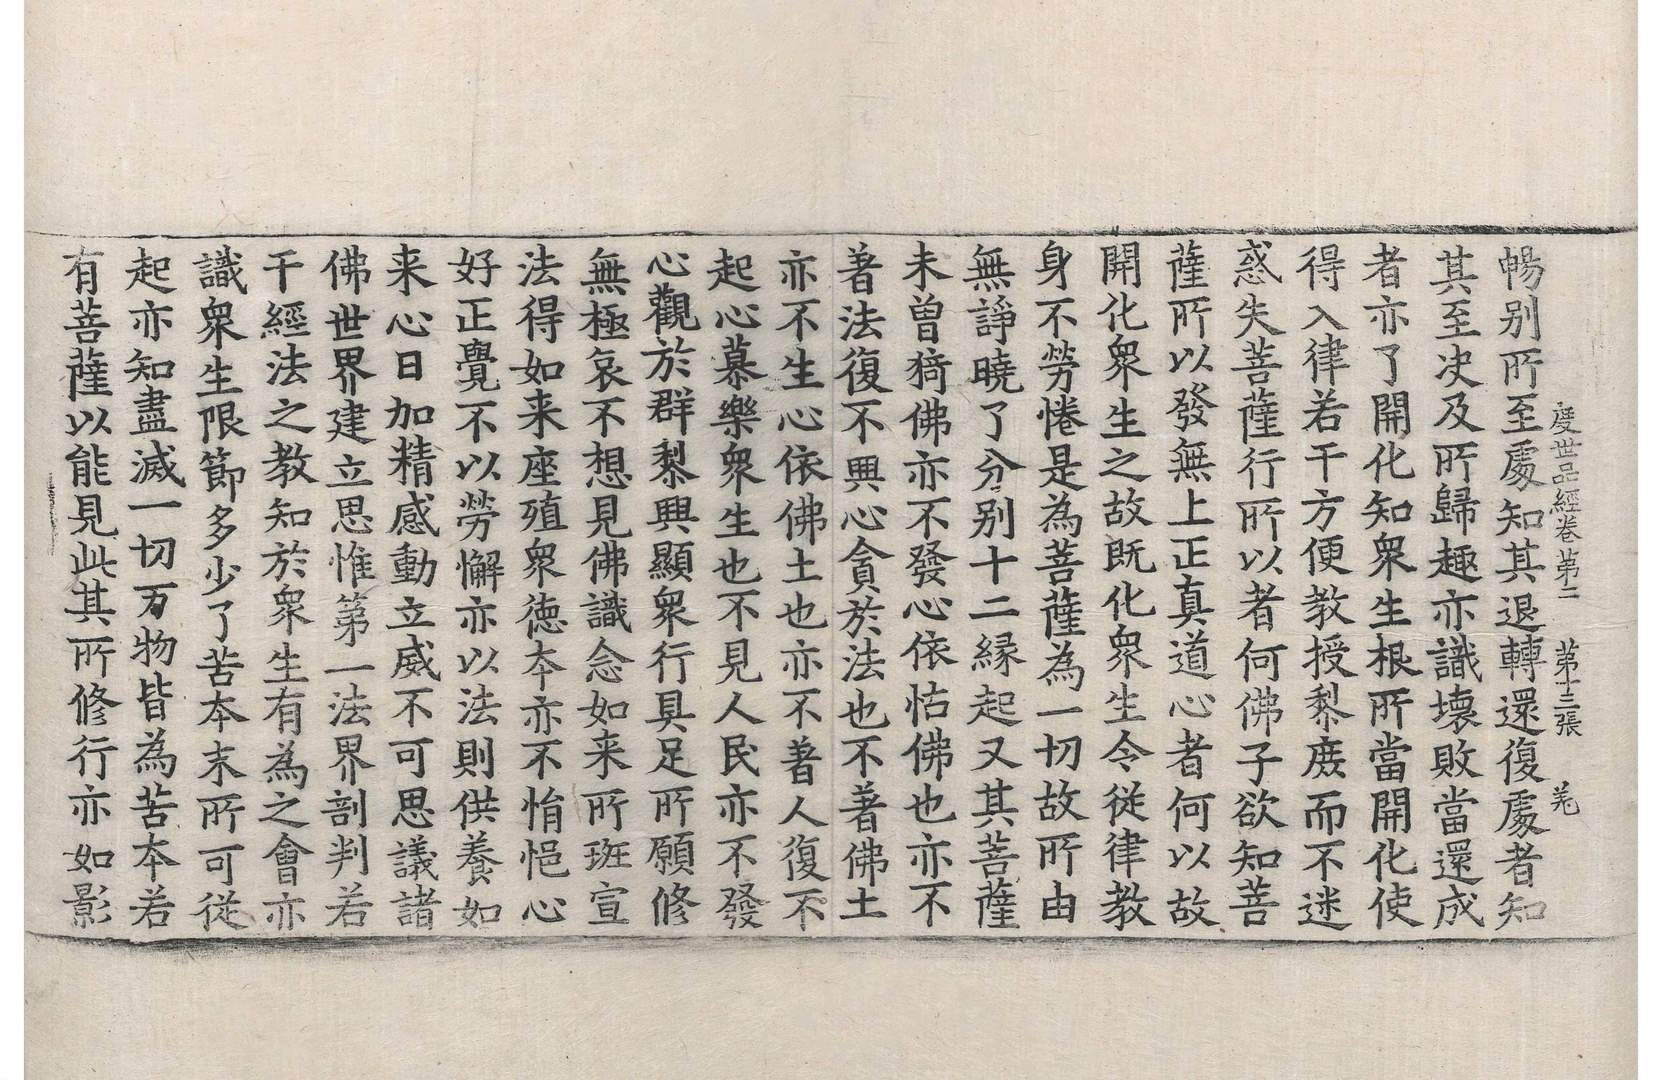 度世品經卷第二　第十三張　羌
暢別所至處知其退轉還復處者知
其至决及所歸趣亦識壞敗當還成
者亦了開化知衆生根所當開化使
得入律若干方便教授黎庶而不迷
惑失菩薩行所以者何佛子欲知菩
薩所以發無上正真道心者何以故
開化衆生之故既化衆生令從律教
身不勞惓是為菩薩為一切故所由
無諍曉了分别十二緣起又其菩薩
未曾猗佛亦不發心依怙佛也亦不
著法復不興心貪於法也不著佛土
亦不生心依佛土也亦不著人復不
起心慕樂衆生也不見人民亦不發
心觀於群黎興顯衆行具足所願修
無極哀不想見佛識念如来所班宣
法得如来座殖衆德本亦不悁悒心
好正覺不以勞懈亦以法則供養如
来心日加精感動立威不可思議諸
佛世界建立思惟第一法界剖判若
干經法之教知於衆生有為之會亦
識衆生限節多少了苦本末所可從
起亦知盡滅一切万物皆為苦本若
有菩薩以能見此其所修行亦如影